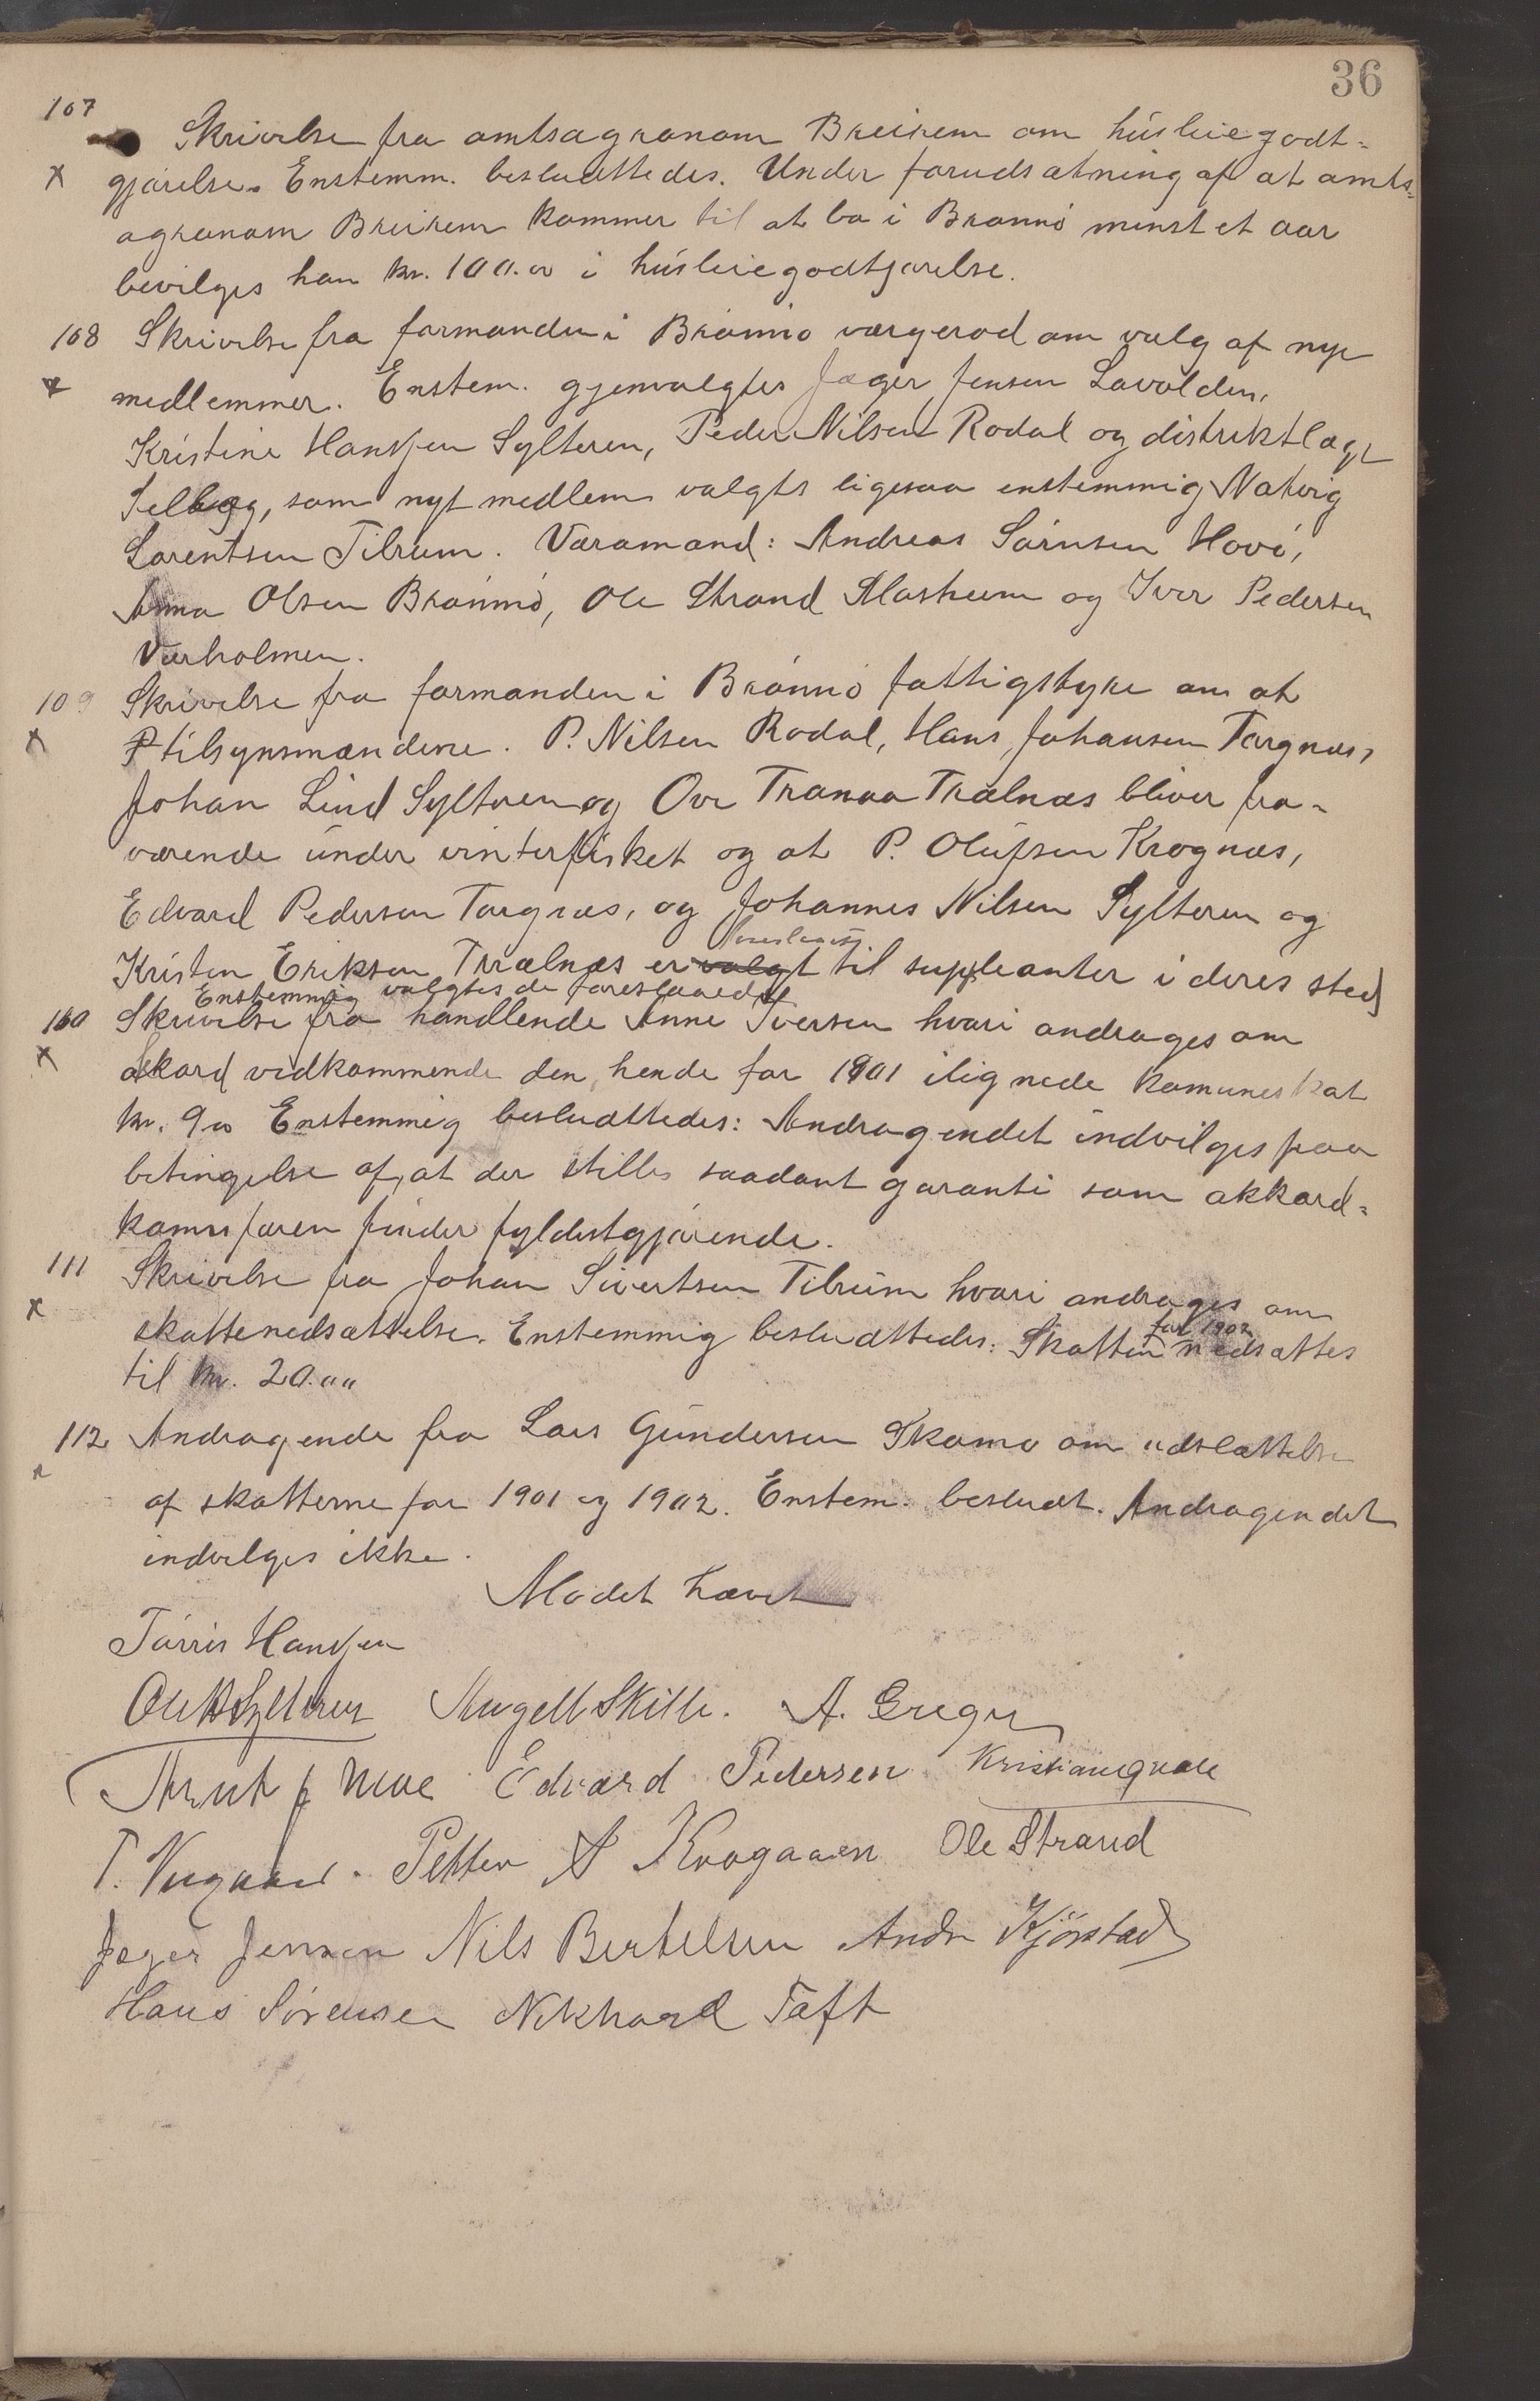 36
107
Skrivelse fra amtsagronom Breirem om húsleiegodt-
x gjørelse. Enstemm. besluttedes. Under forudsætning af at amts-
agronom Breirem kommer til at bo i Brønnø minst et aar
bevilges han kr. 100.00 i húsleiegodtjørelse.
108 Skrivelse fra formanden i Brønnø vergeraad om valg af nye
x medlemmer. Enstem. gjenvalgtes Jæger Jensen Lavolden,
Kristine Hansen Sylteren, Peder Nilsen Rodal og distriktlæge
Selberg, som nyt medlem valgts ligesaa enstemmig Natvig
Lorentsen Tilrum. Varamand: Andreas Sørnsen Hovø,
Anna Olsen Brønnø, Ole Strand Mosheim og Iver Pedersen
Værholmen.
109 Skrivelse fra formanden i Brønnø fattigstyre om at
x tilsynsmændene. P. Nilsen Rodal, Hans Johansen Torgnæs,
Johan Lind Sylteren og Ove Tranaa Trælnæs bliver fra-
værende únder vinterfisket og at P. Olúfsen Krognæs,
Edvard Pedersen Torgnæs, og Johannes Nilsen Sylteren og
foreslaaet
Kristen Eriksen Trælnæs er valgt til suppleanter i deres sted
Enstemmig valgtes de foreslaaede
110 Skrivelse fra handlende Anne Iversen hvori andrages om
x akkord vedkommende den hende for 1901 ilignede komuneskat
kr. 9.00 Enstemmig besluttedes: Andragendet indvilges paa
betingelse af, at der stilles saadant garanti som akkord-
komisjæren finder fyldestgjørende.
111 Skrivelse fra Johan Sivertsen Tilrúm hvori andrages om
for 1902
x skattenedsættelse. Enstemmig besluttedes: Skatten nedsættes
til kr. 20.00
112 Andragende fra Lars Gúndersen Skomo om udslættelse
x af skatterne for 1901 og 1902. Enstem. besludt. Andragendet
indvilges ikke.
Mødet hævet
Tørris Hansen
Ole H Sylteren Angell Skille. A. Greger
Arnt J Moe Edvard Pedersen Kristian Qvale
T. Nygaard. Petter A Krogaaen Ole Strand
Jæger Jensen Nils Bertelsen Andr Kjørstad
Hans Sørensen Nekhard Toft